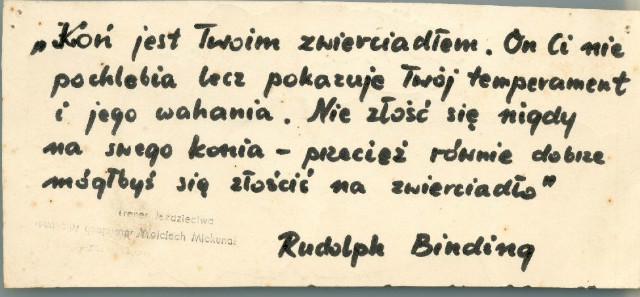 „Koń jest Twoim zwierciadłem. On Ci nie
pochlebia lecz pokazuje Twój temperament
i jego wahania. Nie złość się nigdy
na swego konia – przecież równie dobrze
mógłbyś się złościć na zwierciadło”
Trener Jeździectwa
Wojciech Mickunas
Rudolph Binding